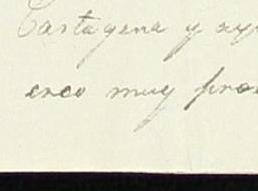 Cartagena y
creo muy